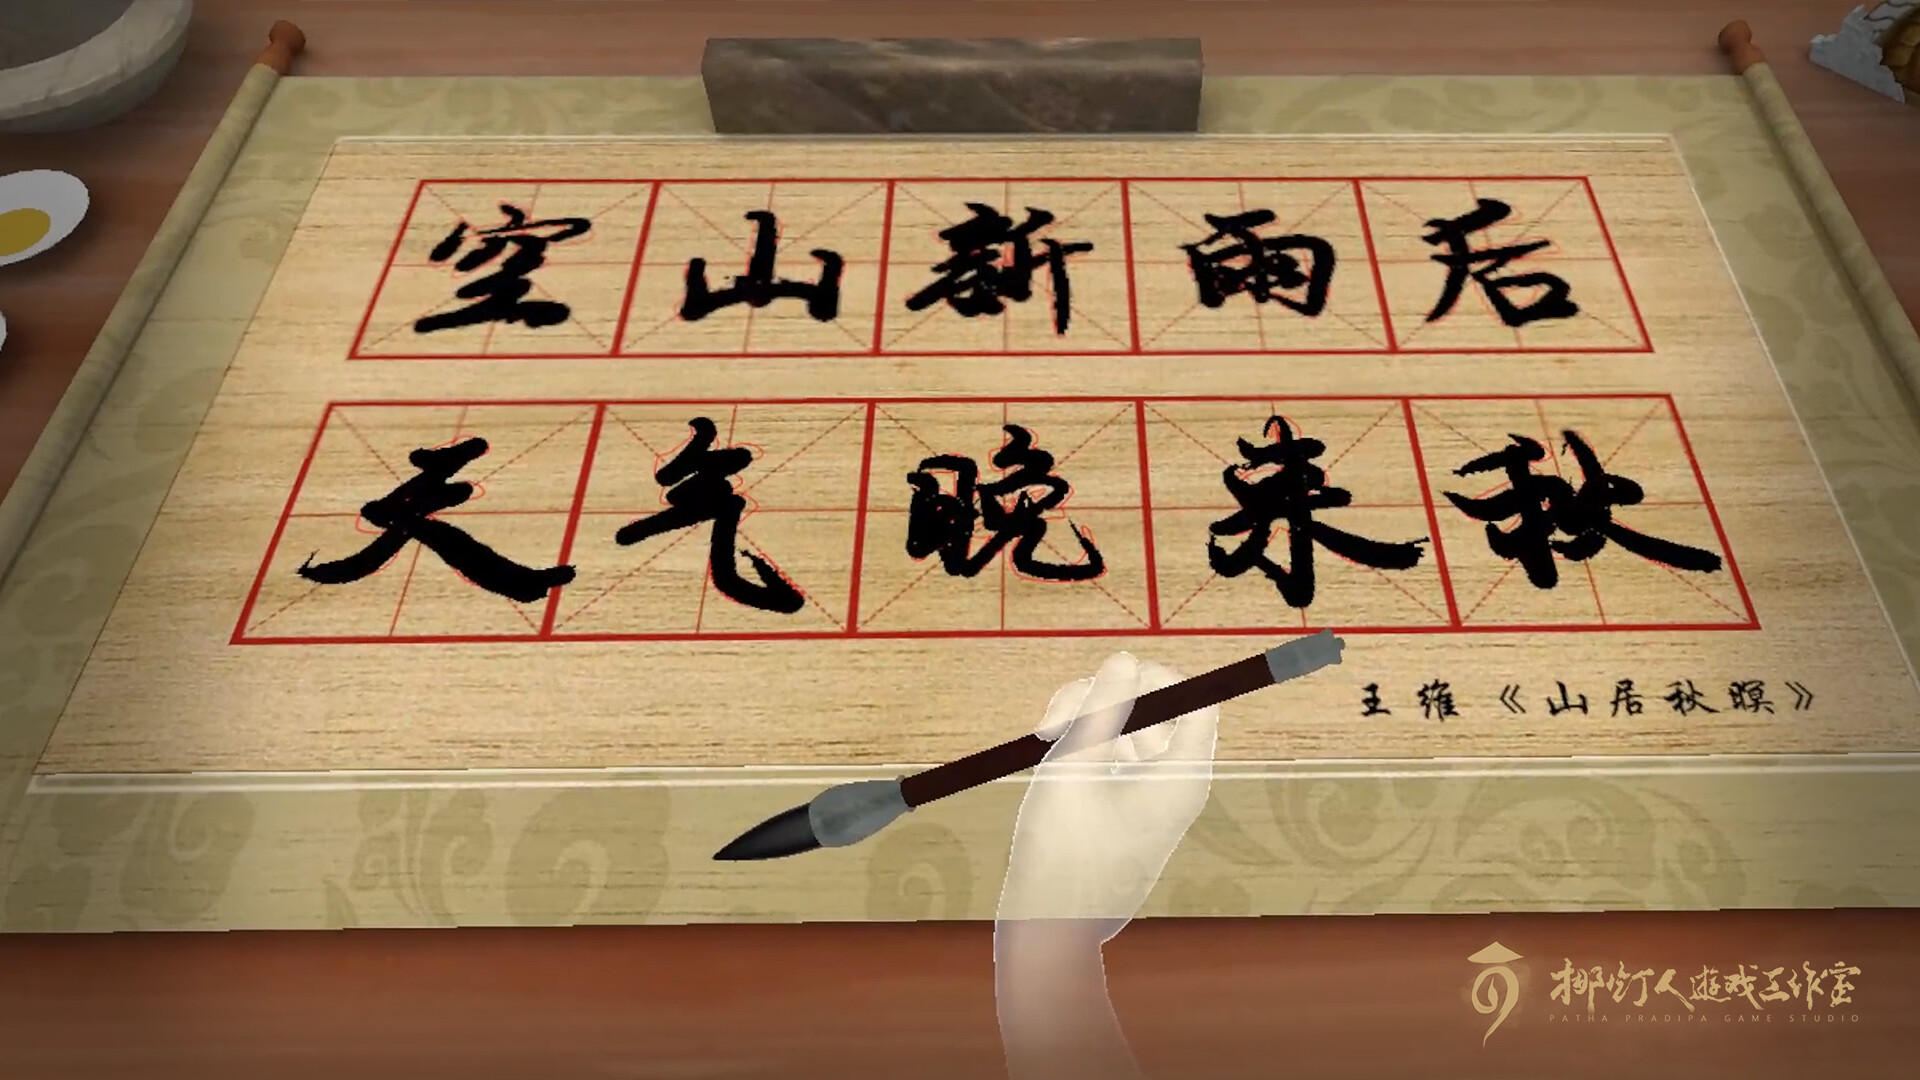 空山新雨后
天气晚来秋
王维《山居秋暝》
挪灯人游戏工作室
PATHA PRADIPA GAME STUDIO